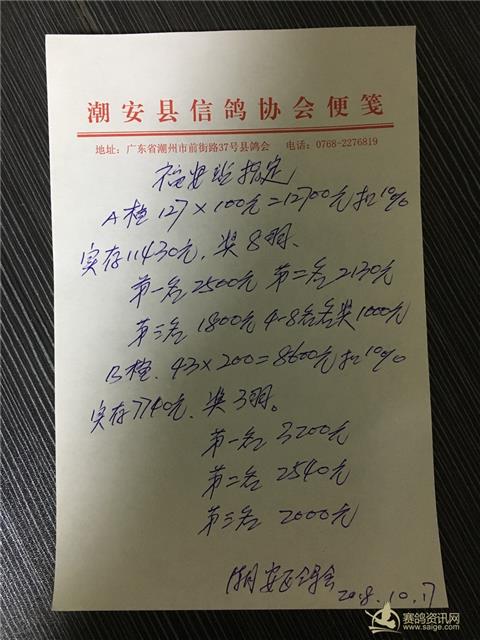 潮安县信鸽协会便笺
地址：广东省潮州市前街路37号县鸽会 电话：0768-2276819
指定
A档 127×100元=12700元扣10%
实存11430元，奖8羽、
第一名2500元 第二名2130元
第三名1800元 4-8名各奖1000元
B档、43×200=8600元扣10%
实存7740元、奖3羽。
第一名 3200元
第二名 2540元
第三名 2000元
潮安区鸽会
2018.10.17
赛鸽资讯网
www.saige.com